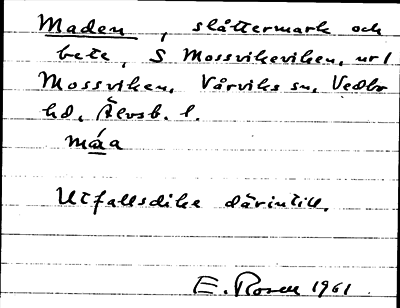 Maden, slåttermark och
bete, S Mossvikeviken, ur 1
Mossviken, Vårviks sn, Vedbo
hd, Älvsb. l.
máa
Utfallsdike därintill.
E. Rosell 1961